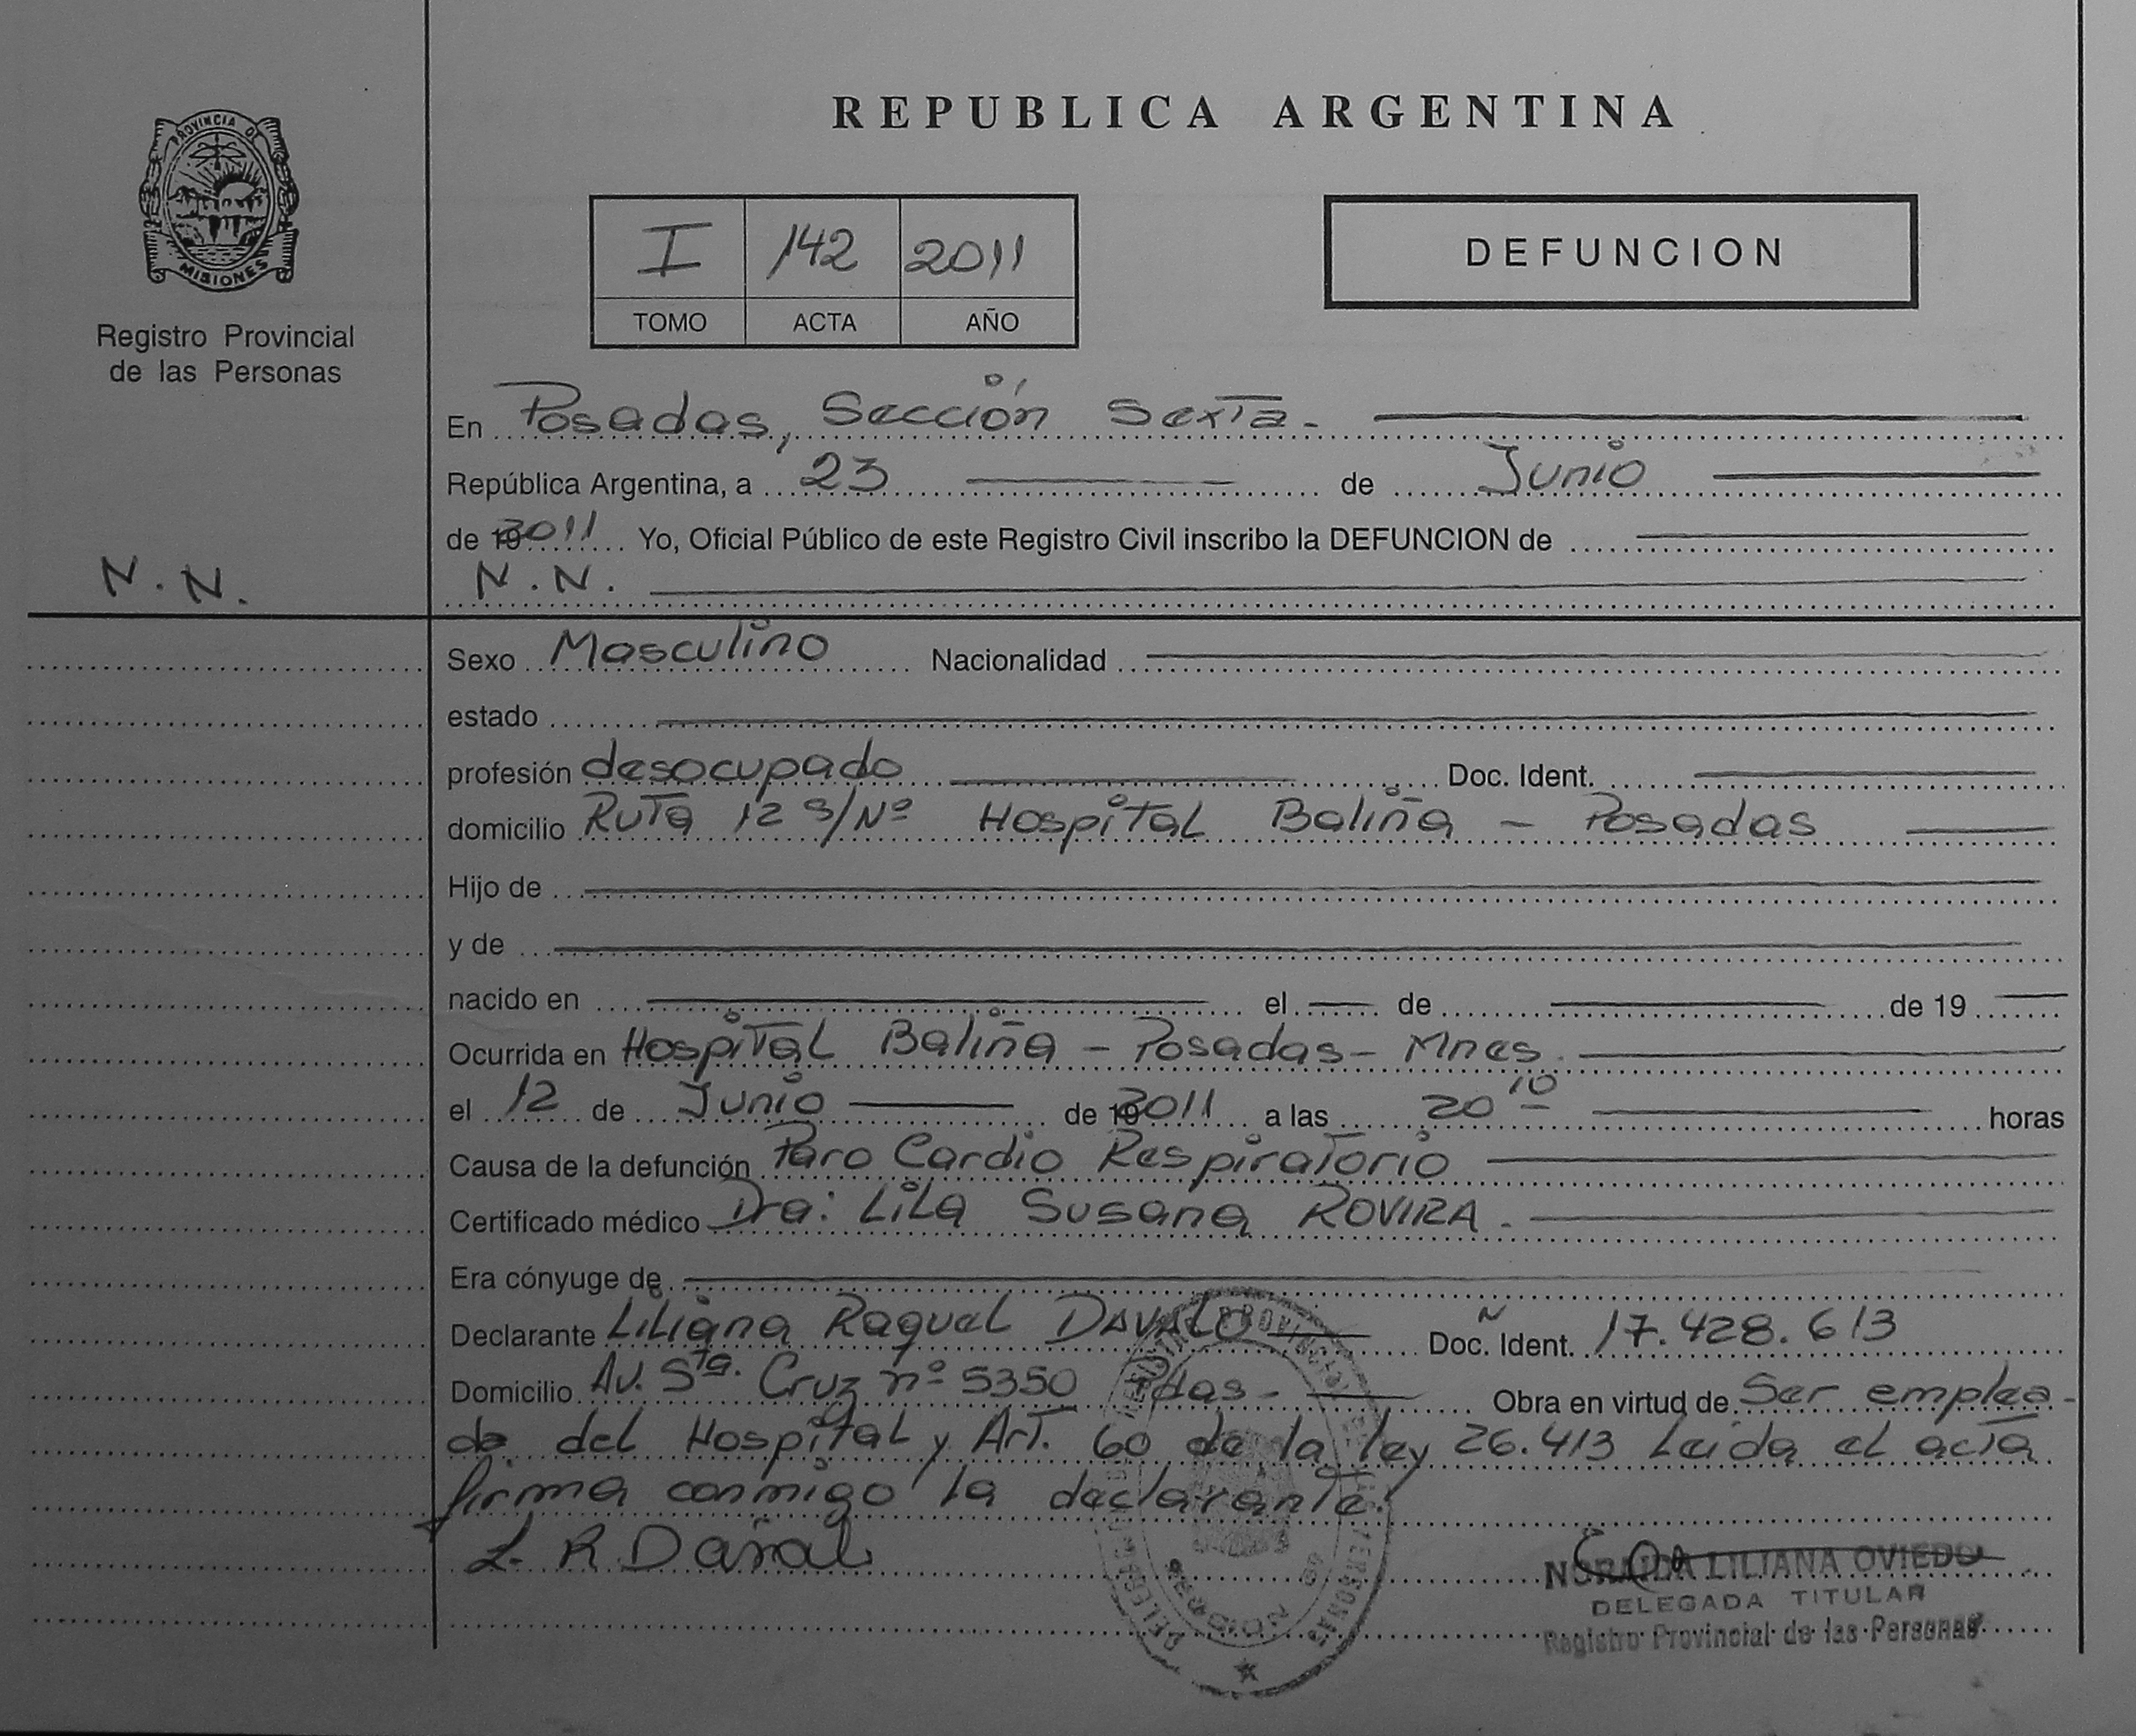 REPUBLICA ARGENTINA
PROVINCIA DE
MISIONES
Registro Provincial
de las Personas
I 142 2011
TOMO ACTA AÑO
DEFUNCION
En Posadas, Sección Sexta.
República Argentina, a 23 de Junio
de 2011 Yo, Oficial Público de este Registro Civil inscribo la DEFUNCION de
N.N.
N.N.
Sexo Masculino Nacionalidad
estado
profesión desocupado Doc. Ident.
domicilio Ruta 12 S/Nº Hospital Baliña - Posadas
Hijo de
y de
nacido en el de de 19
Ocurrida en Hospital Baliña - Posadas - Mnes.
el 12 de Junio de 2011 a las 20 10 horas
Causa de la defunción Paro Cardio Respiratorio
Certificado médico Dra: Lila Susana ROVIRA.
Era cónyuge de
Declarante Liliana Raquel DAVALO Doc. Ident. 17.428.613
Domicilio Av. Sta. Cruz nº 5350 Pdas - Obra en virtud de Ser emplea-
da del Hospital y Art. 60 de la ley 26.413 Leida el acta
firma conmigo la declarante.
L. R. Daval
NORAIDA LILIANA OVIEDO
DELEGADA TITULAR
Registro Provincial de las Personas